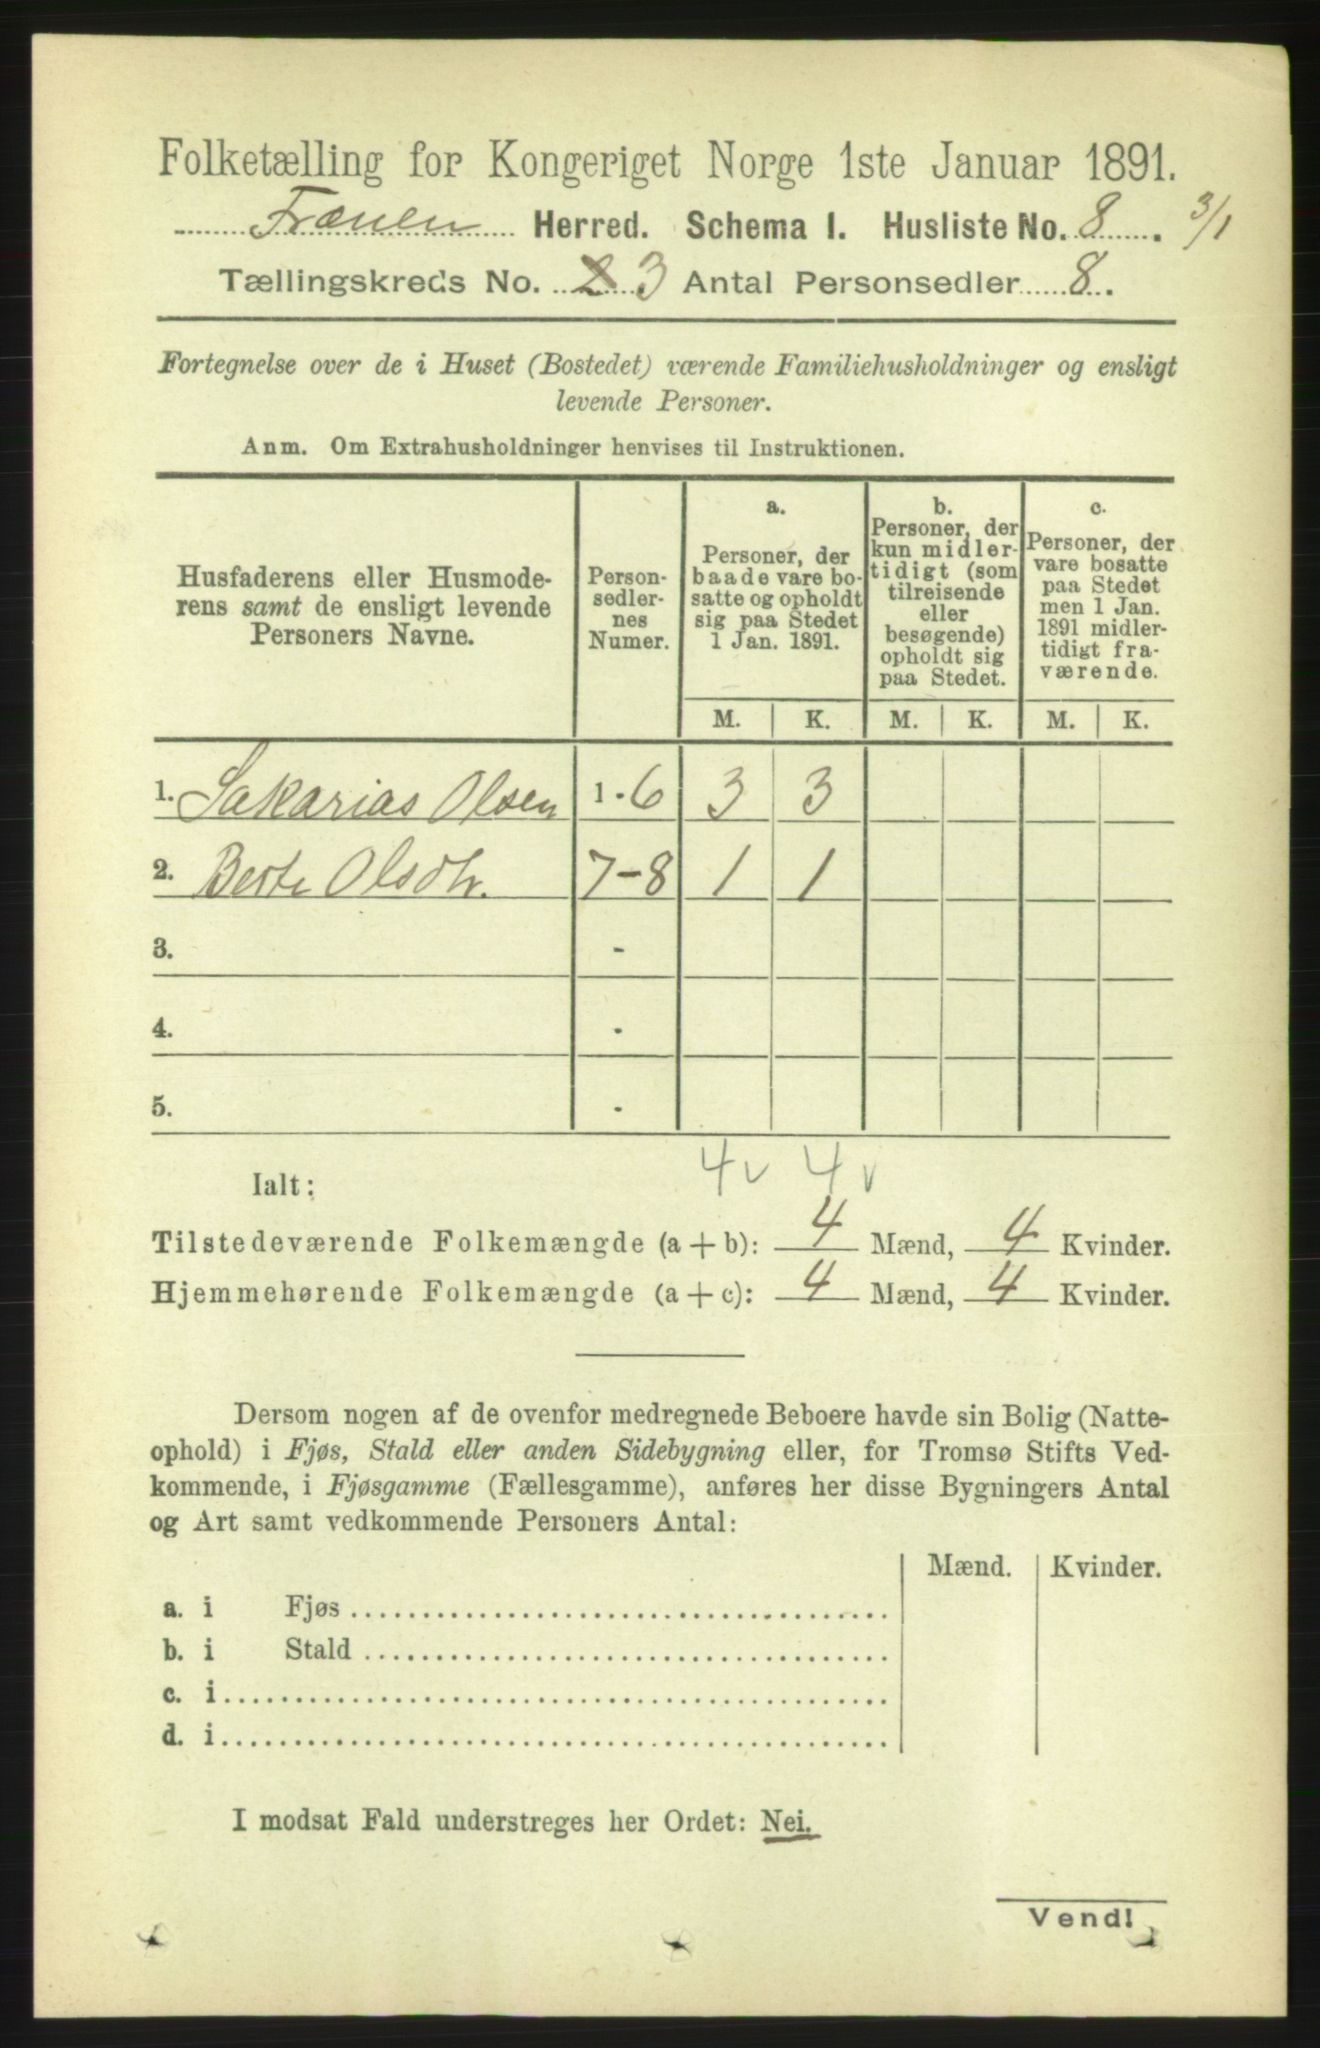 Folketælling for Kongeriget Norge 1ste Januar 1891.
Frænen Herred. Schema I. Husliste No. 8. 3/1
Tællingskreds No. 2 3 Antal Personsedler 8.
Fortegnelse over de i Huset (Bostedet) værende Familiehusholdninger og ensligt
levende Personer.
Anm. Om Extrahusholdninger henvises til Instruktionen.
Husfaderens eller Husmode-
rens samt de ensligt levende
Personers Navne.
Person-
sedler-
nes
Numer.
a.
Personer, der
baade vare bo-
satte og opholdt
sig paa Stedet
1 Jan. 1891.
b.
Personer, der
kun midler-
tidigt (som
tilreisende
eller
besøgende)
opholdt sig
paa Stedet.
c.
Personer, der
vare bosatte
paa Stedet
men 1 Jan.
1891 midler-
tidigt fra-
værende.
M. K. M. K. M. K.
1. Sakarias Olsen 1-6 3 3
2. Berte Olsdtr. 7-8 1 1
3. -
4. -
5. -
4 v 4 v
Ialt:
Tilstedeværende Folkemængde (a + b): 4 Mænd, 4 Kvinder.
Hjemmehørende Folkemængde (a + c): 4 Mænd, 4 Kvinder.
Dersom nogen af de ovenfor medregnede Beboere havde sin Bolig (Natte-
ophold) i Fjøs, Stald eller anden Sidebygning eller, for Tromsø Stifts Ved-
kommende, i Fjøsgamme (Fællesgamme), anføres her disse Bygningers Antal
og Art samt vedkommende Personers Antal:
Mænd. Kvinder.
a. i Fjøs
b. i Stald
c. i
d. i
I modsat Fald understreges her Ordet: Nei.
Vend!